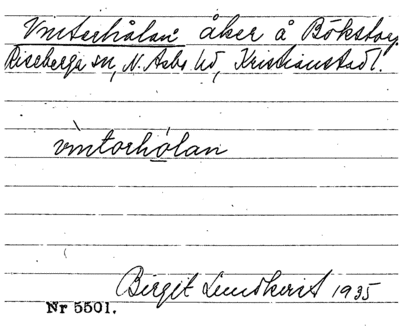 Vinterhålan åker å Bökstorp
Riseberga sn, N. Åsbo hd, Kristianstad l.
vìntorhólan
Birgit Lundkvist 1935
Nr 5501.